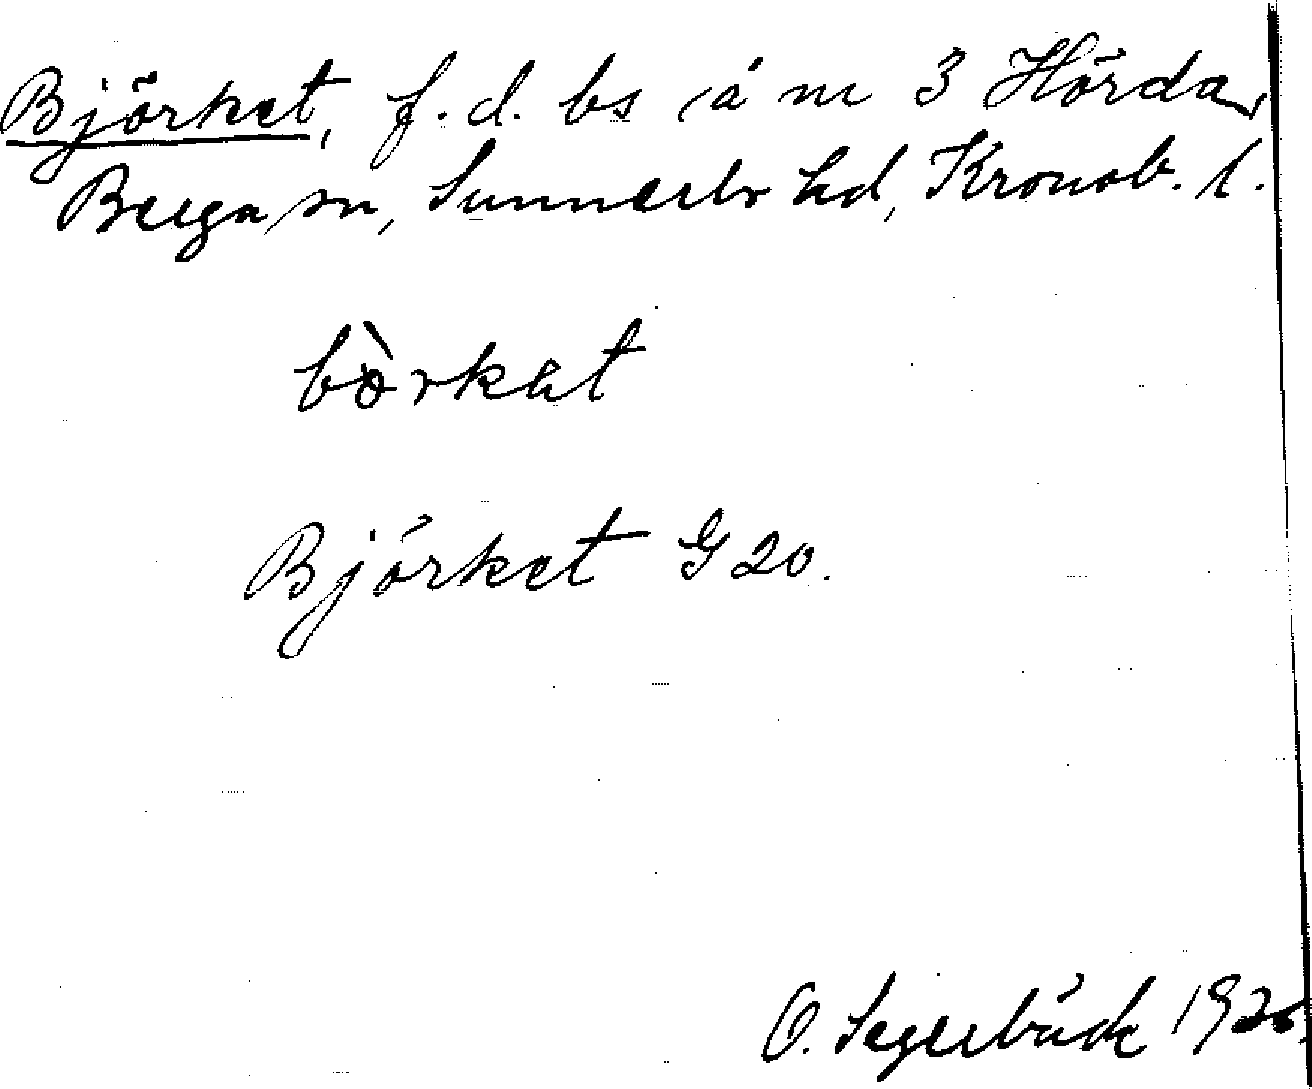 Björket, f.d. bs å nr 3 Hörda,
Berga sn, Sunnerbo hd, Kronob. l.
bòrkat
Björket G 20.
O. Segerbäck